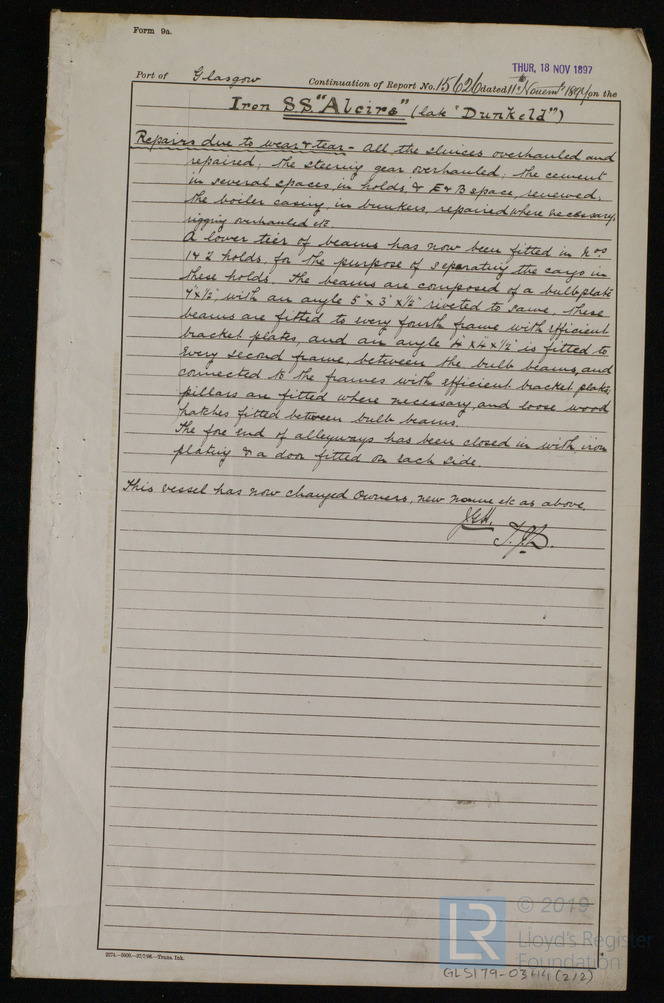 Form 9a.
THUR. 18 NOV 1897
Port of Glasgow Continuation of Report No. 15626 dated 11th Novembr 1897 on the
Iron SS "Alcira" (late "Dunkeld")
Repairs due to wear & tear - All the sluices overhauled and
repaired, the steering gear overhauled, the cement
in several spaces in holds, & E & B space, renewed,
the boiler casing, in bunkers, repaired where necessary,
rigging overhauled etc
A lower tier of beams has now been fitted in Nos
1 & 2 holds, for the purpose of separating the cargo in
these holds. The beams are composed of a bulb plate
9" x 1/2", with an angle 5" x 3" x 1/2" riveted to same, these
beams are fitted to every fourth frame with efficient
bracket plates, and an angle 4" x 4" x 1/2" is fitted to
every second frame, between the bulb beams, and
connected to the frames with efficient bracket plates,
pillars are fitted where necessary, and loose wood
hatches fitted between bulb beams.
The fore end of alleyways has been closed in with iron
plating & a door fitted on each side.
This vessel has now changed Owners, new name etc as above.
J.G.H.
2174.—5000.—27/7/96.—Trans. Ink.
LR
© 2019
Lloyd's Register
Foundation
GLS179-0344 (2/2)